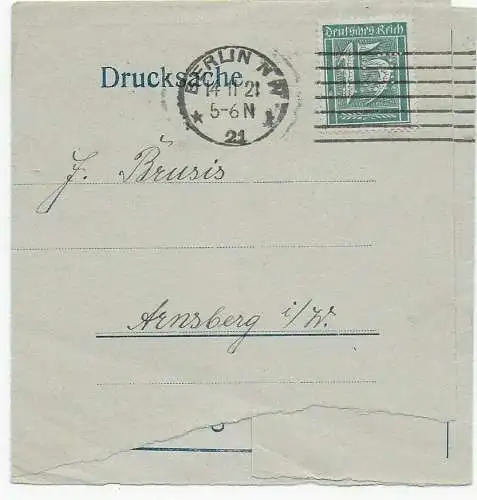 Deutsches Reich
15
Drucksache
BERLIN NW
14 11 21
5-6 N
* 21 *
F. Brusis
Arnsberg i/W.